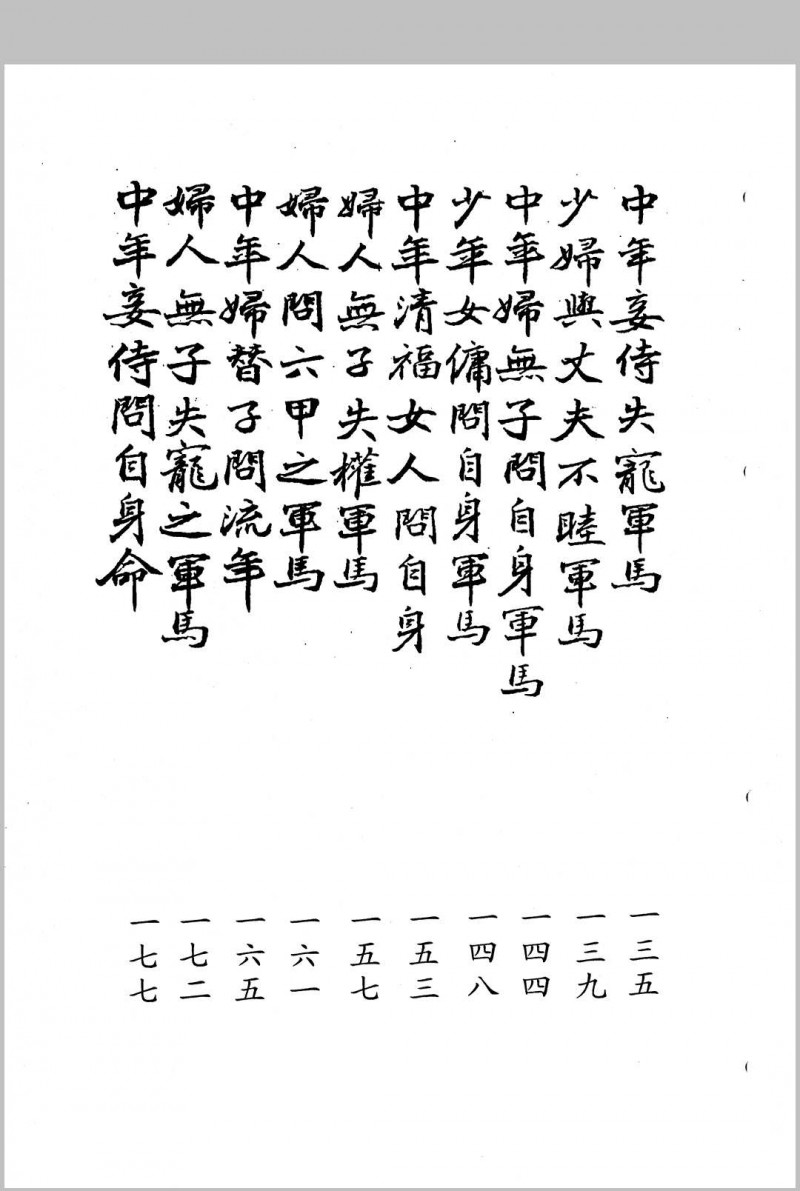 中年妾侍失寵軍馬 一三五
少婦與丈夫不睦軍馬 一三九
中年婦無子問自身軍馬 一四四
少年女傭問自身軍馬 一四八
中年清福女人問自身 一五三
婦人無子失權軍馬 一五七
婦人問六甲之軍馬 一六一
中年婦替子問流年 一六五
婦人無子失寵之軍馬 一七二
中年妾侍問自身命 一七七